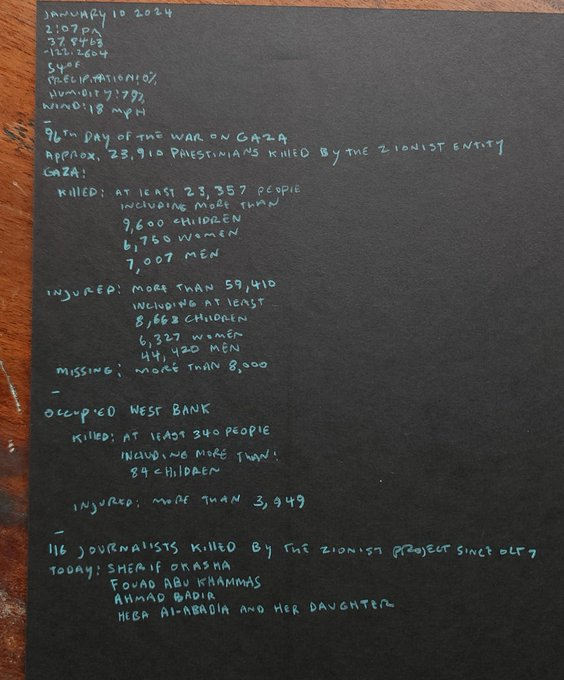 JANUARY 10 2024
2:07 PM
37.8463
-122.2604
54°F
PRECIPITATION: 0%
HUMIDITY: 79%
WIND: 18 MPH
—
96TH DAY OF THE WAR ON GAZA
APPROX. 23,910 PALESTINIANS KILLED BY THE ZIONIST ENTITY
GAZA:
KILLED: AT LEAST 23,357 PEOPLE
INCLUDING MORE THAN
9,600 CHILDREN
6,750 WOMEN
7,007 MEN
INJURED: MORE THAN 59,410
INCLUDING AT LEAST
8,663 CHILDREN
6,327 WOMEN
44,420 MEN
MISSING: MORE THAN 8,000
—
OCCUPIED WEST BANK
KILLED: AT LEAST 340 PEOPLE
INCLUDING MORE THAN:
84 CHILDREN
INJURED: MORE THAN 3,949
—
116 JOURNALISTS KILLED BY THE ZIONIST PROJECT SINCE OCT 7
TODAY: SHERIF OKASHA
FOUAD ABU KHAMMAS
AHMAD BADIR
HEBA Al-ABADLA AND HER DAUGHTER